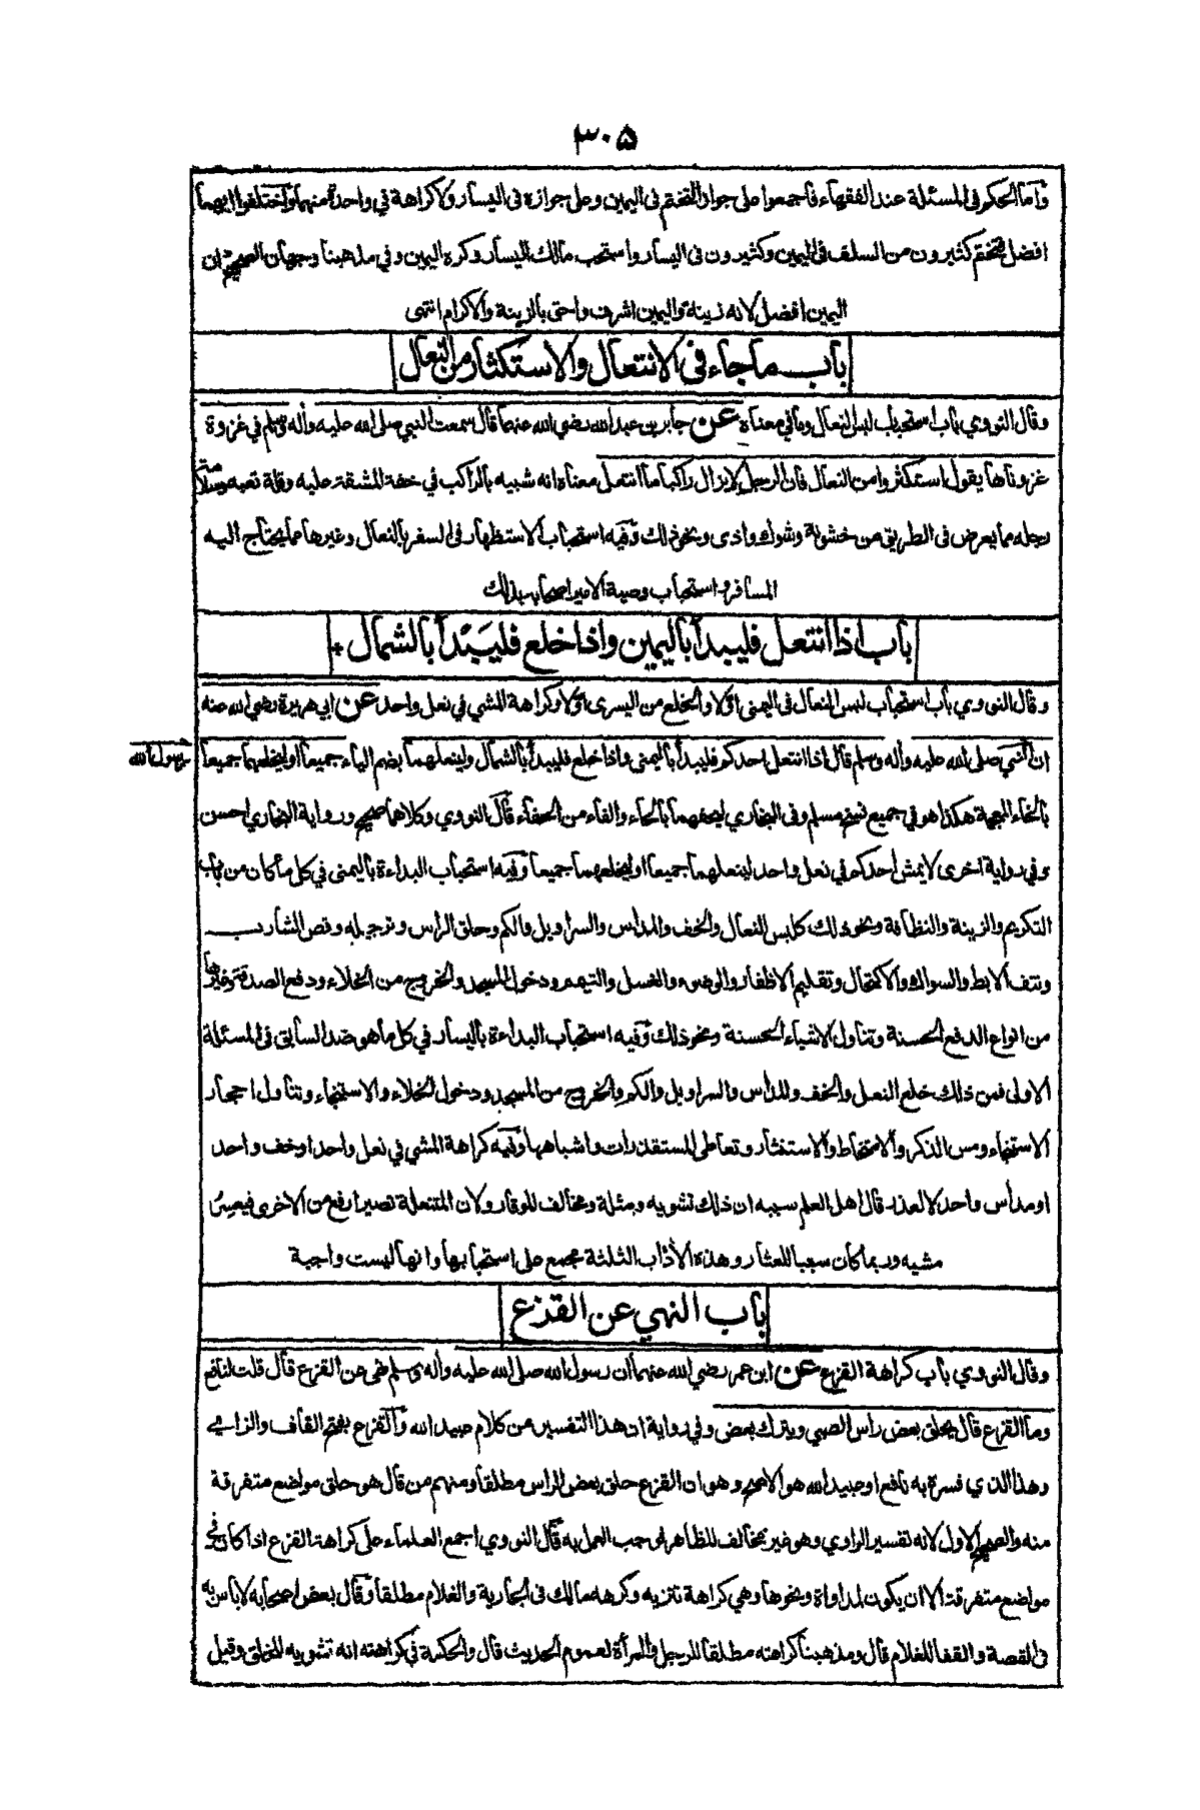 ٣٠٥
وأما الحكم فى المسئلة عند الفقهاء فأجمعوا على جواز التختم فى اليمين وعلى جوازه فى اليسار ولا كراهة في واحدة منهما واختلفوا ايهما
افضل فتختم كثيرون من السلف فى اليمين وكثيرون فى اليسار واستحب مالك اليسار وكره اليمين وفي مذهبنا وجهان الصحيح ان
اليمين افضل لانه زينة واليمين اشرف واحق بالزينة والاكرام انتهى
باب ما جاء فى الانتعال والاستكثار من النعال
وقال النووي باب استحباب لبس النعال وما في معناه عن جابر بن عبد الله رضي الله عنهما قال سمعت النبي صلى الله عليه وأله وسلم في غزوة
غزوناها يقول استكثروا من النعال فان الرجل لا يزال راكبا ما انتعل معناه انه شبيه بالراكب في خفة المشقة عليه وقلة تعبه وسلامة
رجله مما يعرض فى الطريق من خشونة وشوك واذى ونحو ذلك وفيه استحباب الاستظهار فى السفر بالنعال وغيرها مما يحتاج اليه
المسافر واستحباب وصية الامير اصحابه بذلك
باب اذا انتعل فليبدأ باليمين واذا خلع فليبدأ بالشمال +
وقال النووي باب استحباب لبس النعال فى اليمنى اولا والخلع من اليسرى اولا وكراهة المشي في نعل واحد عن ابي هريرة رضي الله عنه
ان النبي صلى الله عليه وأله وسلم قال اذا انتعل احدكم فليبدأ باليمنى واذا خلع فليبدأ بالشمال ولينعلهما بضم الياء جميعا او ليخلعهما جميعا
رسول الله
بالخاء المعجمة هكذا هو في جميع نسخ مسلم وفى البخاري ليحفهما بالحاء والفاء من الحفاء قال النووي وكلاهما صحيح ورواية البخاري احسن
وفي رواية اخرى لا يمش احدكم في نعل واحد لينعلهما جميعا او ليخلعهما جميعا وفيه استحباب البداءة باليمنى في كل ما كان من باب
التكريم والزينة والنظافة ونحو ذلك كلبس النعال والخف والمداس والسراويل والكم وحلق الراس وترجيله وقص الشارب
ونتف الابط والسواك والاكتحال وتقليم الاظفار والوضوء والغسل والتيمم ودخول المسجد والخروج من الخلاء ودفع الصدقة وغيرها
من انواع الدفع الحسنة وتناول الاشياء الحسنة ونحو ذلك وفيه استحباب البداءة باليسار في كل ما هو ضد السابق فى المسئلة
الاولى فمن ذلك خلع النعل والخف والمداس والسراويل والكم والخروج من المسجد ودخول الخلاء والاستنجاء وتناول احجار
الاستنجاء ومس الذكر والامتخاط والاستنثار وتعاطى المستقذرات واشباهها وفيه كراهة المشي في نعل واحد او خف واحد
او مداس واحد لا لعذر قال اهل العلم سببه ان ذلك تشويه ومثلة ومخالف للوقار ولان المنتعلة تصير ارفع من الاخرى فيعسر
مشيه وربما كان سببا للعثار وهذه الأداب الثلثة مجمع على استحبابها وانها ليست واجبة
باب النهي عن القزع
وقال النووي باب كراهة القزع عن ابن عمر رضي الله عنهما أن رسول الله صلى الله عليه وأله وسلم نهى عن القزع قال قلت لنافع
وما القزع قال يحلق بعض راس الصبي ويترك بعض وفي رواية ان هذا التفسير من كلام عبيد الله والقزع بفتح القاف والزاي
وهذا الذي فسره به نافع او عبيد الله هو الاصح وهو ان القزع حلق بعض الراس مطلقا ومنهم من قال هو حلق مواضع متفرقة
منه والصحيح الاول لانه تفسير الراوي وهو غير مخالف للظاهر فوجب العمل به قال النووي اجمع العلماء على كراهة القزع اذا كان في
مواضع متفرقة الا ان يكون لمداواة ونحوها وهي كراهة تنزيه وكرهه مالك فى الجارية والغلام مطلقا وقال بعض اصحابه لا باس به
فى القصة والقفا للغلام قال ومذهبنا كراهته مطلقا للرجل والمرأة لعموم الحديث قال والحكمة في كراهته انه تشويه للخلق وقيل